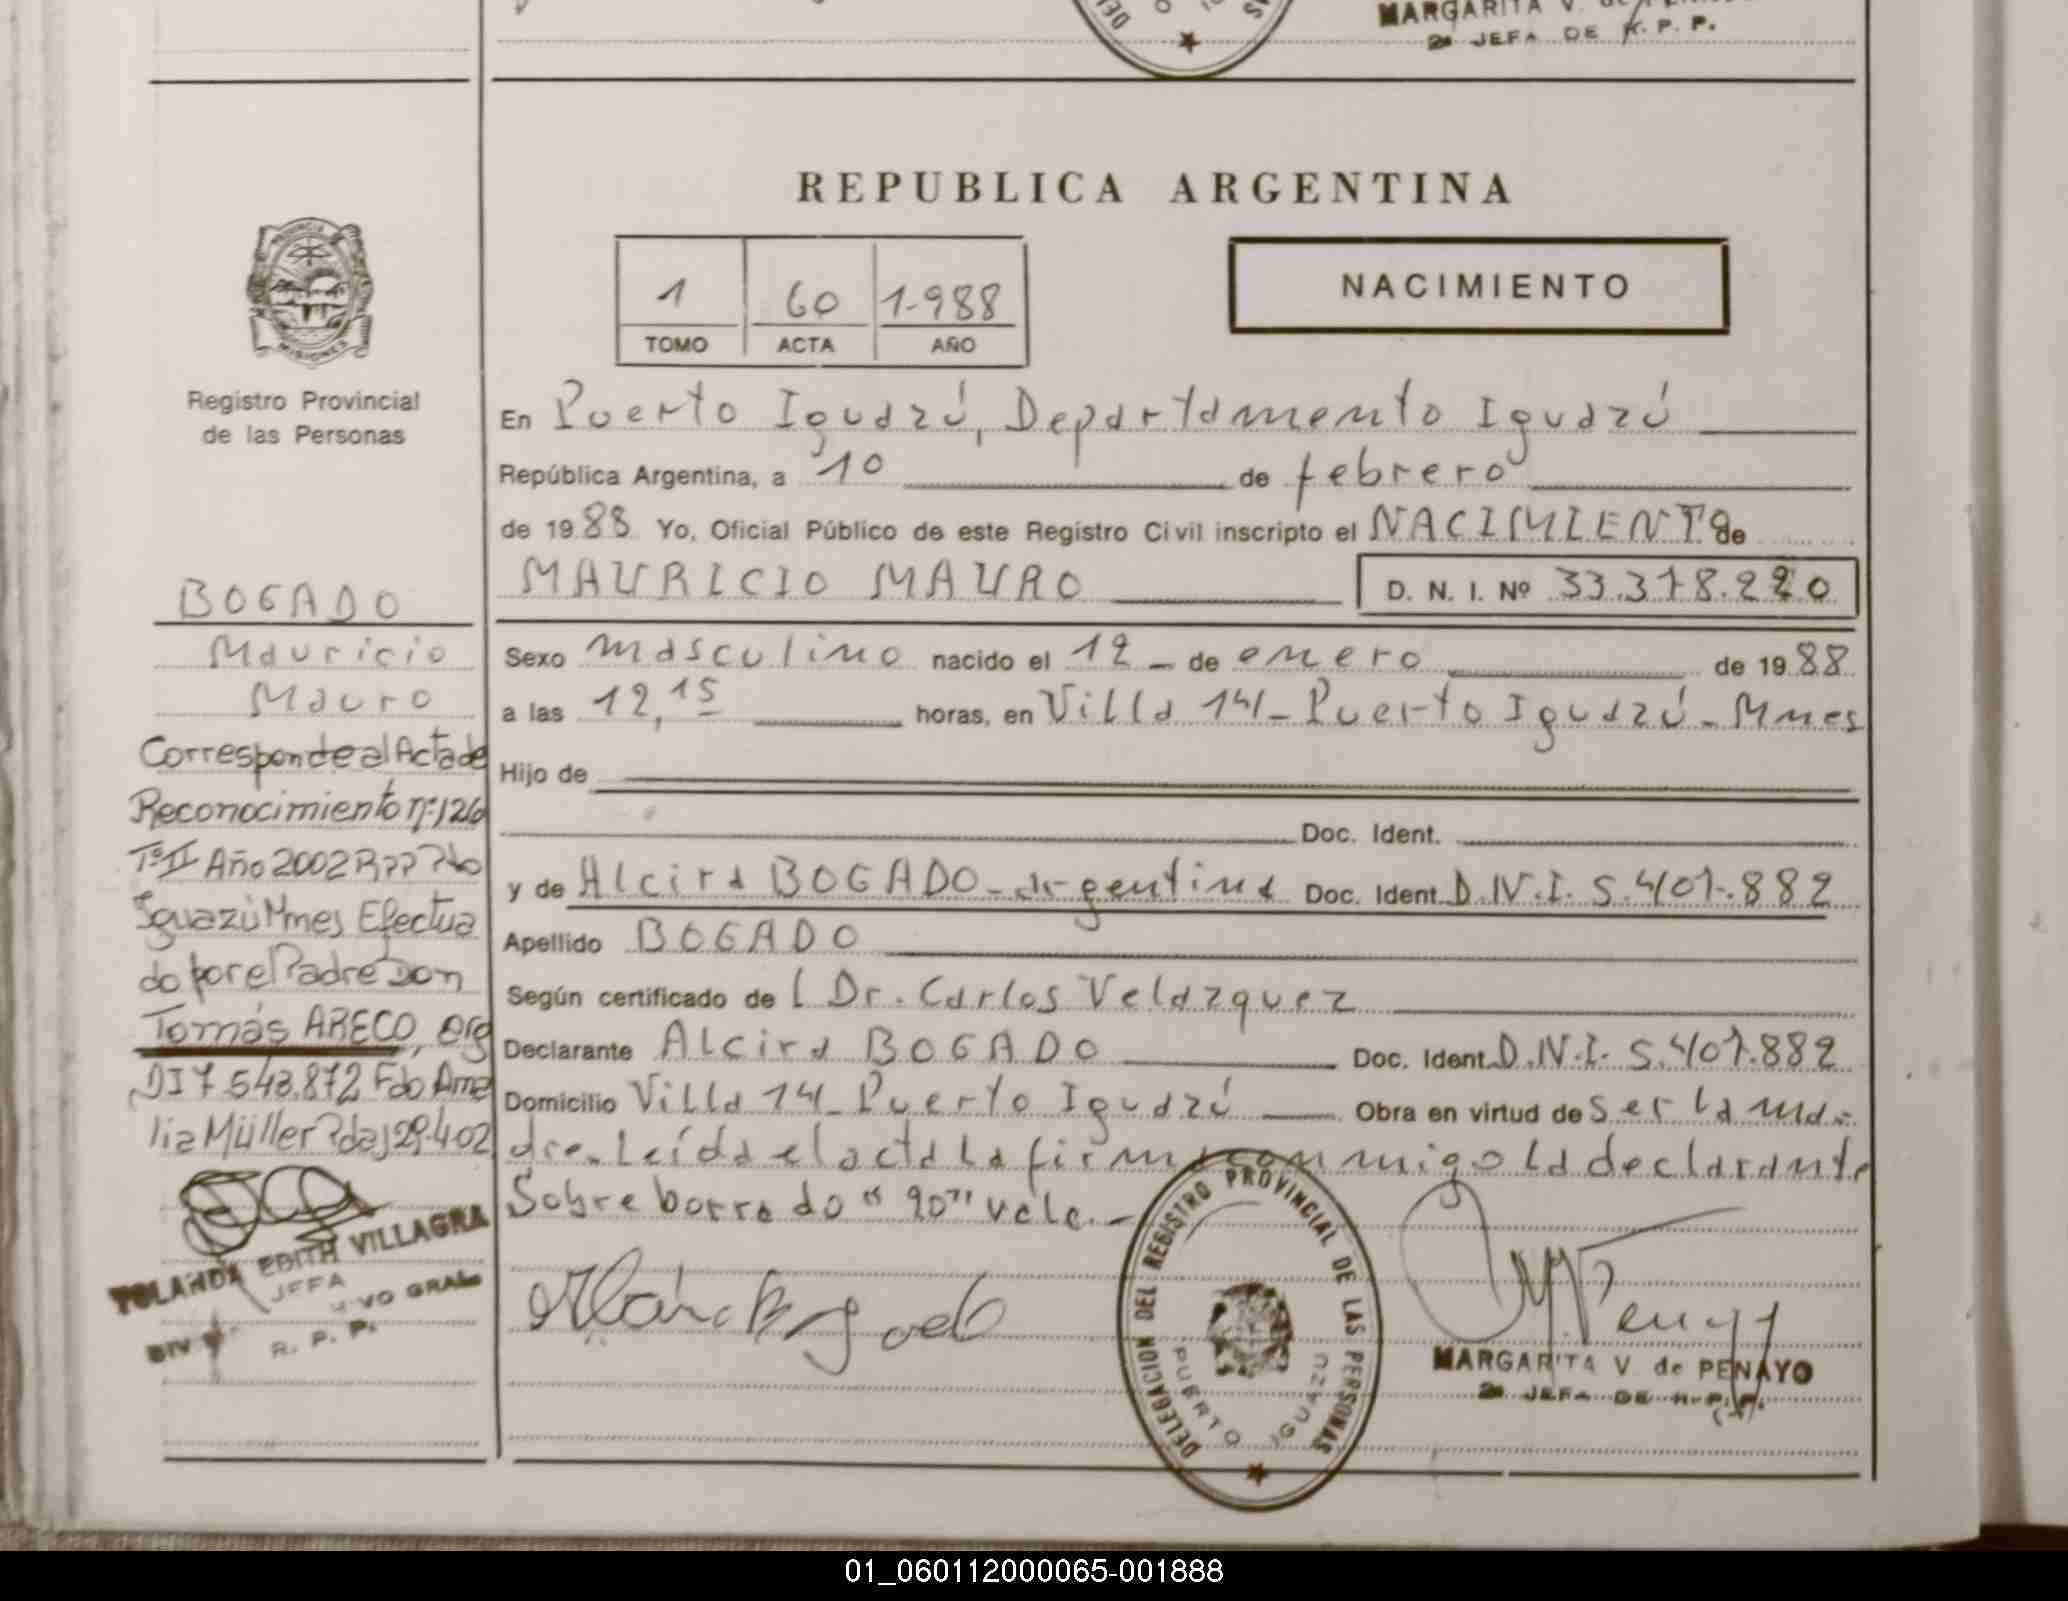 MARGARITA V. de
2a JEFA DE R. P. P.
REPUBLICA ARGENTINA
PROVINCIA
MISIONES
Registro Provincial
de las Personas
1 60 1.988
TOMO ACTA AÑO
NACIMIENTO
En Puerto Iguazú, Departamento Iguazú
República Argentina, a 10 de febrero
de 1988 Yo, Oficial Público de este Registro Civil inscripto el NACIMIENTO de
MAURICIO MAURO D. N. I. Nº 33.378.220
Sexo masculino nacido el 12 de enero de 1988
a las 12,15 horas, en Villa 14 - Puerto Iguazú - Mnes
Hijo de
Doc. Ident.
y de Alcira BOGADO - argentina Doc. Ident. D.N.I. 5.407.882
Apellido BOGADO
Según certificado de l Dr. Carlos Velazquez
Declarante Alcira BOGADO Doc. Ident. D.N.I. 5.407.882
Domicilio Villa 14 - Puerto Iguazú Obra en virtud de ser la ma-
dre. Leída el acta la firma conmigo la declarante
Sobre borrado "20" vale.-
BOGADO
Mauricio
Mauro
Corresponde al Acta de
Reconocimiento nº 126
Tº II Año 2002 RPP Pto
Iguazú Mnes Efectua
do por el Padre Don
Tomás ARECO, arg
DI 7.543.872 Fdo Ame
lia Müller Pdas 29-4-02
YOLANDA EDITH VILLAGRA
JEFA
GRAL
R. P. P.
DELEGACION DEL REGISTRO PROVINCIAL DE LAS PERSONAS
PUERTO IGUAZU
MARGARITA V. de PENAYO
2a JEFA DE R. P. P.
01_060112000065-001888